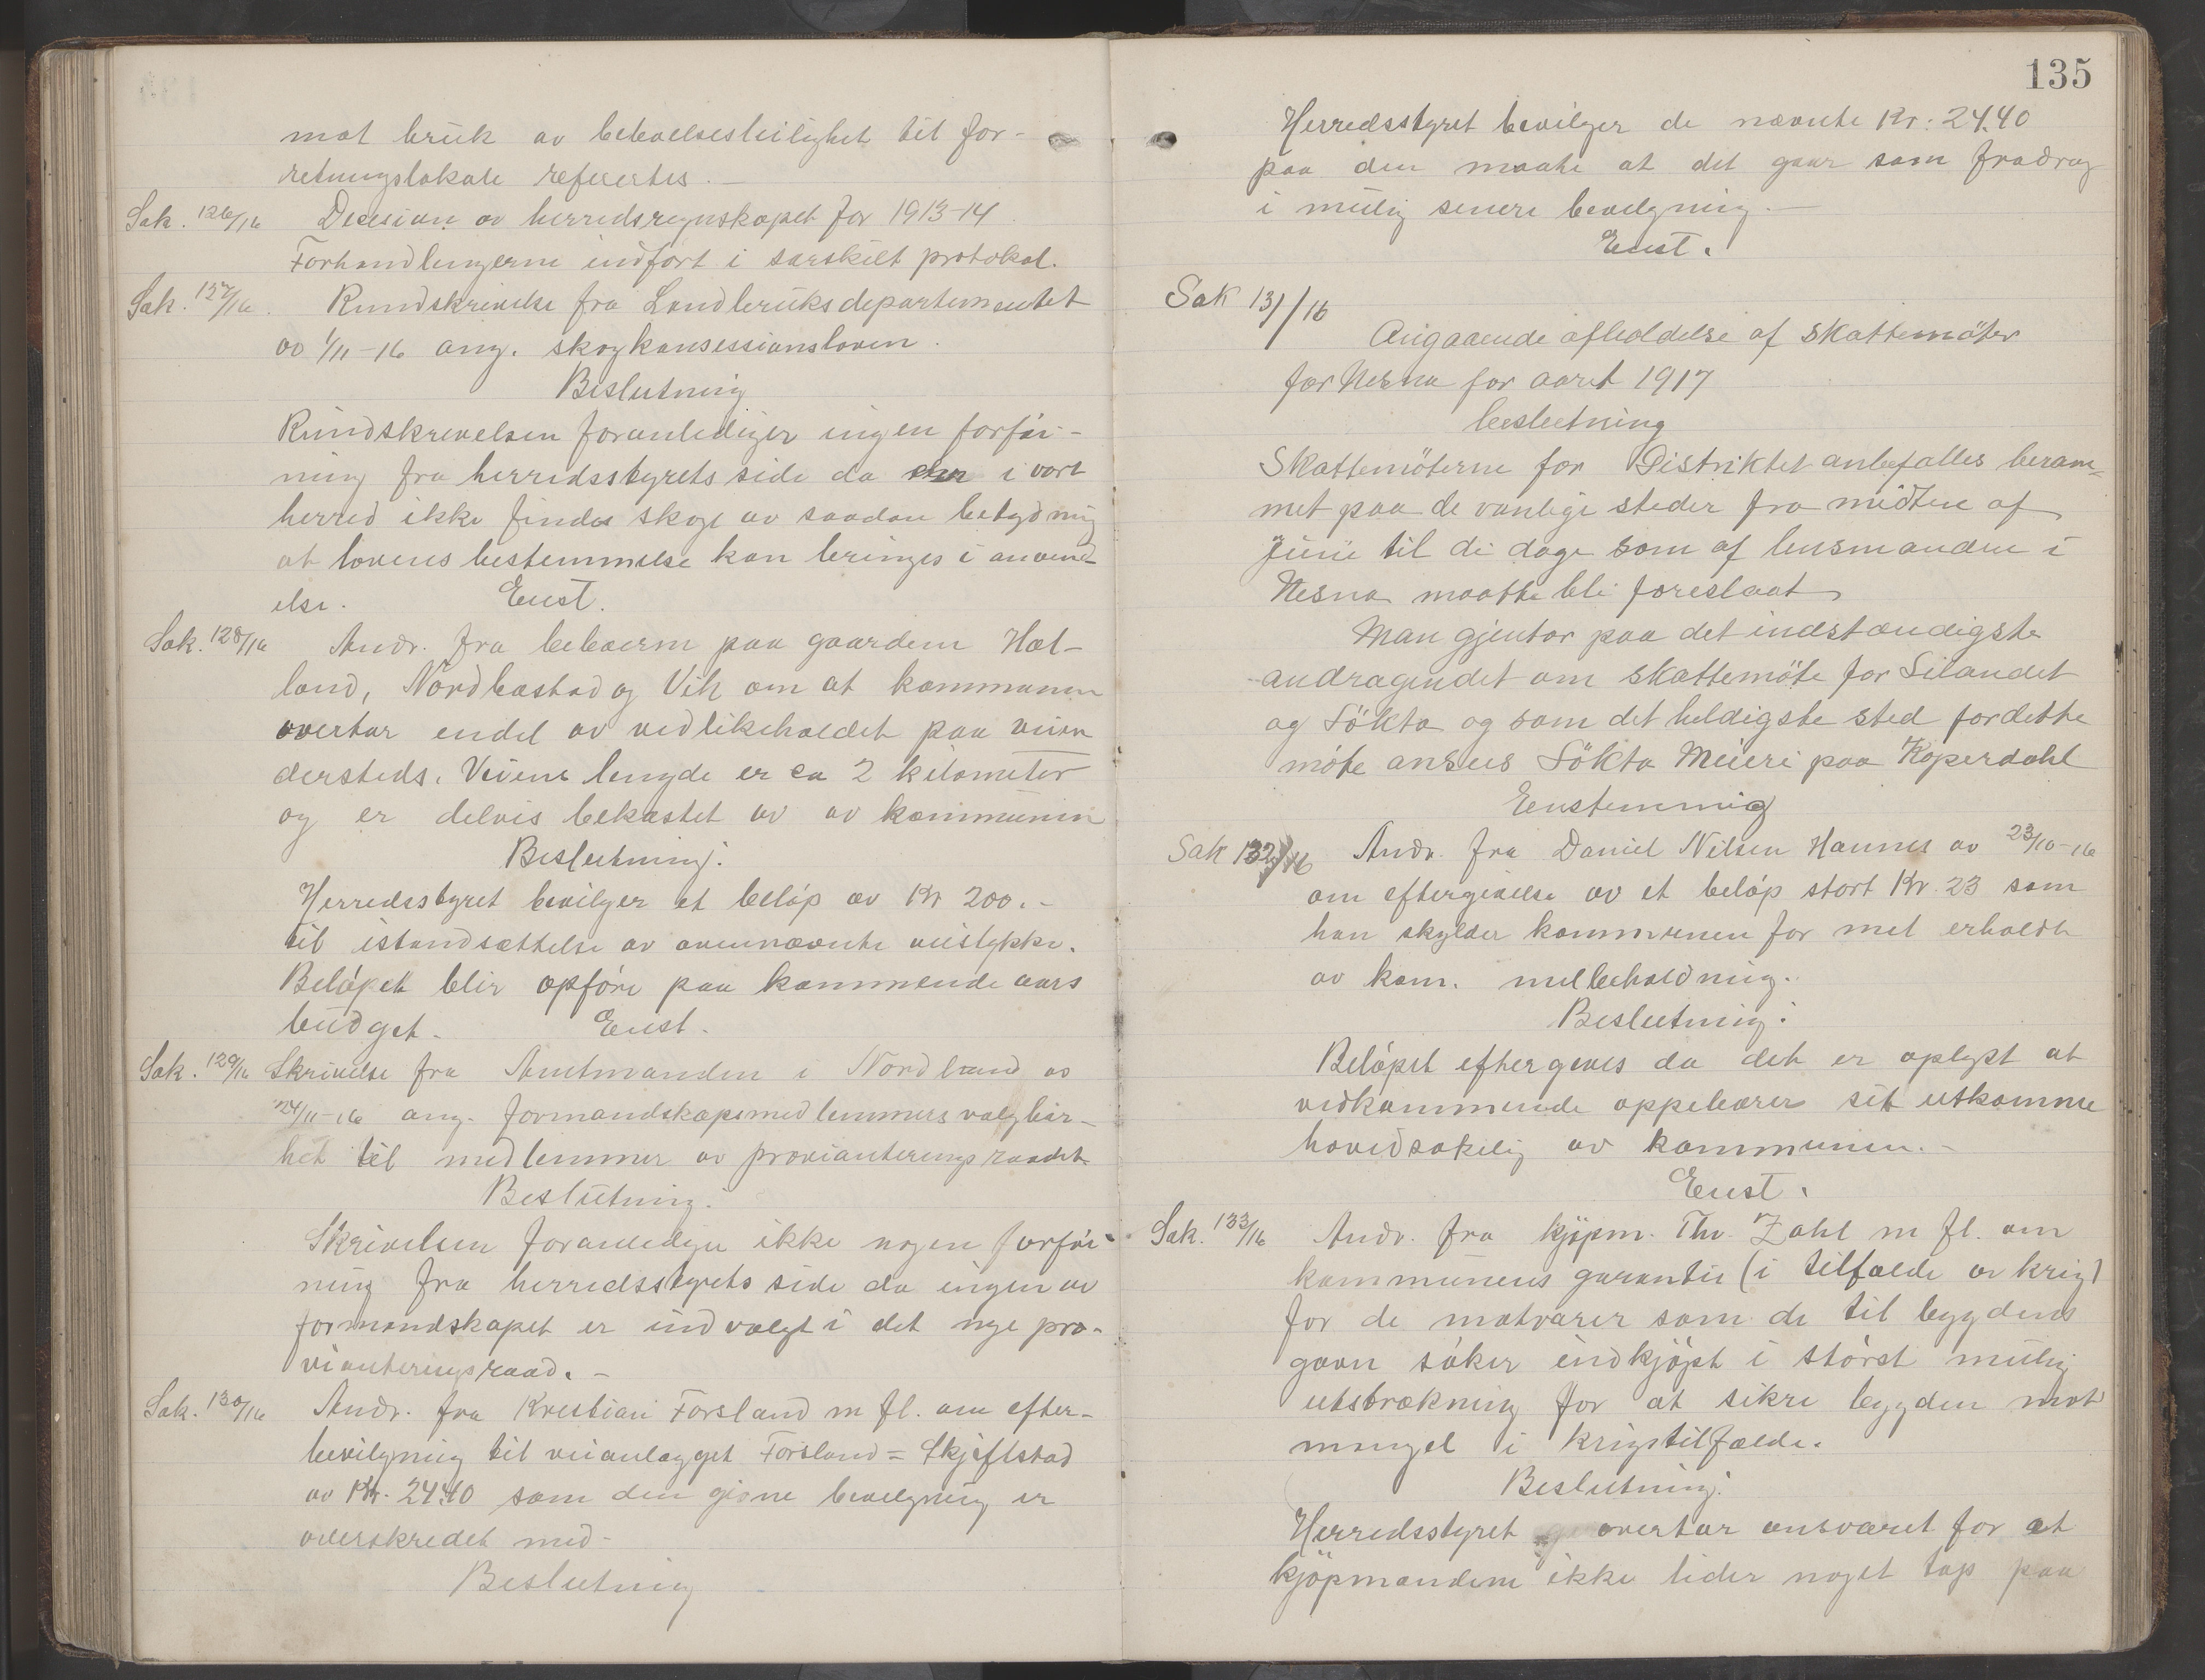 mot bruk av beboelsesleilighet til for-
retningslokale refereertes.-
Sak. 126/16 Decision av herredsregnskapet for 1913-14.
Forhandlingerne indført i særskilt protokol.
Sak. 127/16. Rundskrivelse fra Landbruksdepartementet
av 1/11-16 ang. skogkonsessionsloven.
Beslutning
Rundskrivelsen foranlediger ingen forføi-
ning fra herredsstyrets side da der i vort
herred ikke findes skoge av saadan betydning
at lovens bestemmelse kan bringes i anvend-
else. Enst.
Sak. 128/16 Andr. fra beboerne paa gaardene Hæl-
land, Nordbostad og Vik om at kommunen
overtar endel av vedlikeholdet paa veien
dersteds. Veiens lengde er ca 2 kilometer
og er delvis bekostet av av kommunen
Beslutning:
Herredsstyret bevilger et beløp av Kr 200.-
til istandsættelse av ovennævnte veistykke.
Beløpet blir opføre paa kommende aars
budget. Enst.
Sak. 129/16 Skrivelse fra Amtmanden i Nordland av
24/11-16 ang. formandskapsmedlemmers valgbar-
het til medlemmer av provianteringsraadet.
Beslutning:
Skrivelsen foranlediger ikke nogen forføi-
ning fra herredsstyrets side da ingen av
formandskapet er indvalgt i det nye pro-
vianteringsraad.-
Sak. 130/16 Andr. fra Kristian Forsland m fl. om efter-
bevilgning til veianlægget Forsland = Skjeflstad
av Kr. 24.40 som den givne bevilgning er
overskredet med-
Beslutning
135
Herredsstyret bevilger de nævnte Kr: 24.40
paa den maate at det gaar som fradrag
i mulig senere bevilgning.-
Enst.
Sak 131/16
Angaaende afholdelse af skattemöter
for Nesna for aaret 1917
beslutning
Skattemöterne for Distriktet anbefalles beram-
met paa de vanlige steder fra midten af
Juni til de dage som af lensmanden i
Nesna maatte bli foreslaat
Man gjentar paa det indstændigste
andragendet om skattemöte for Lilandet
og Lökta og som det heldigste sted for dette
möte ansees Lökta Meieri paa Koperdahl
Eenstemmig
Sak 132/16 Andr. fra Daniel Nilsen Hannes av 23/10-16
om eftergivelse av et beløp stort Kr. 23 som
han skylder kommunen for mel erholdt
av kom. melbeholdning.
Beslutning:
Beløpet eftergives da det er oplyst at
vedkommende oppebærer sit utkomme
hovedsakelig av kommunen.-
Enst.
Sak. 133/16 Andr. fra kjøpm. Thv. Zahl m fl. om
kommunens garantie (i tilfælde av krig)
for de matvarer som de til bygdens
gavn søker indkjøpt i størst mulig
utstrækning for at sikre bygden mot
mangel i krigstilfælde.
Beslutning:
Herredsstyret overtar ansvaret for at
kjöpmændene ikke lider noget tap paa